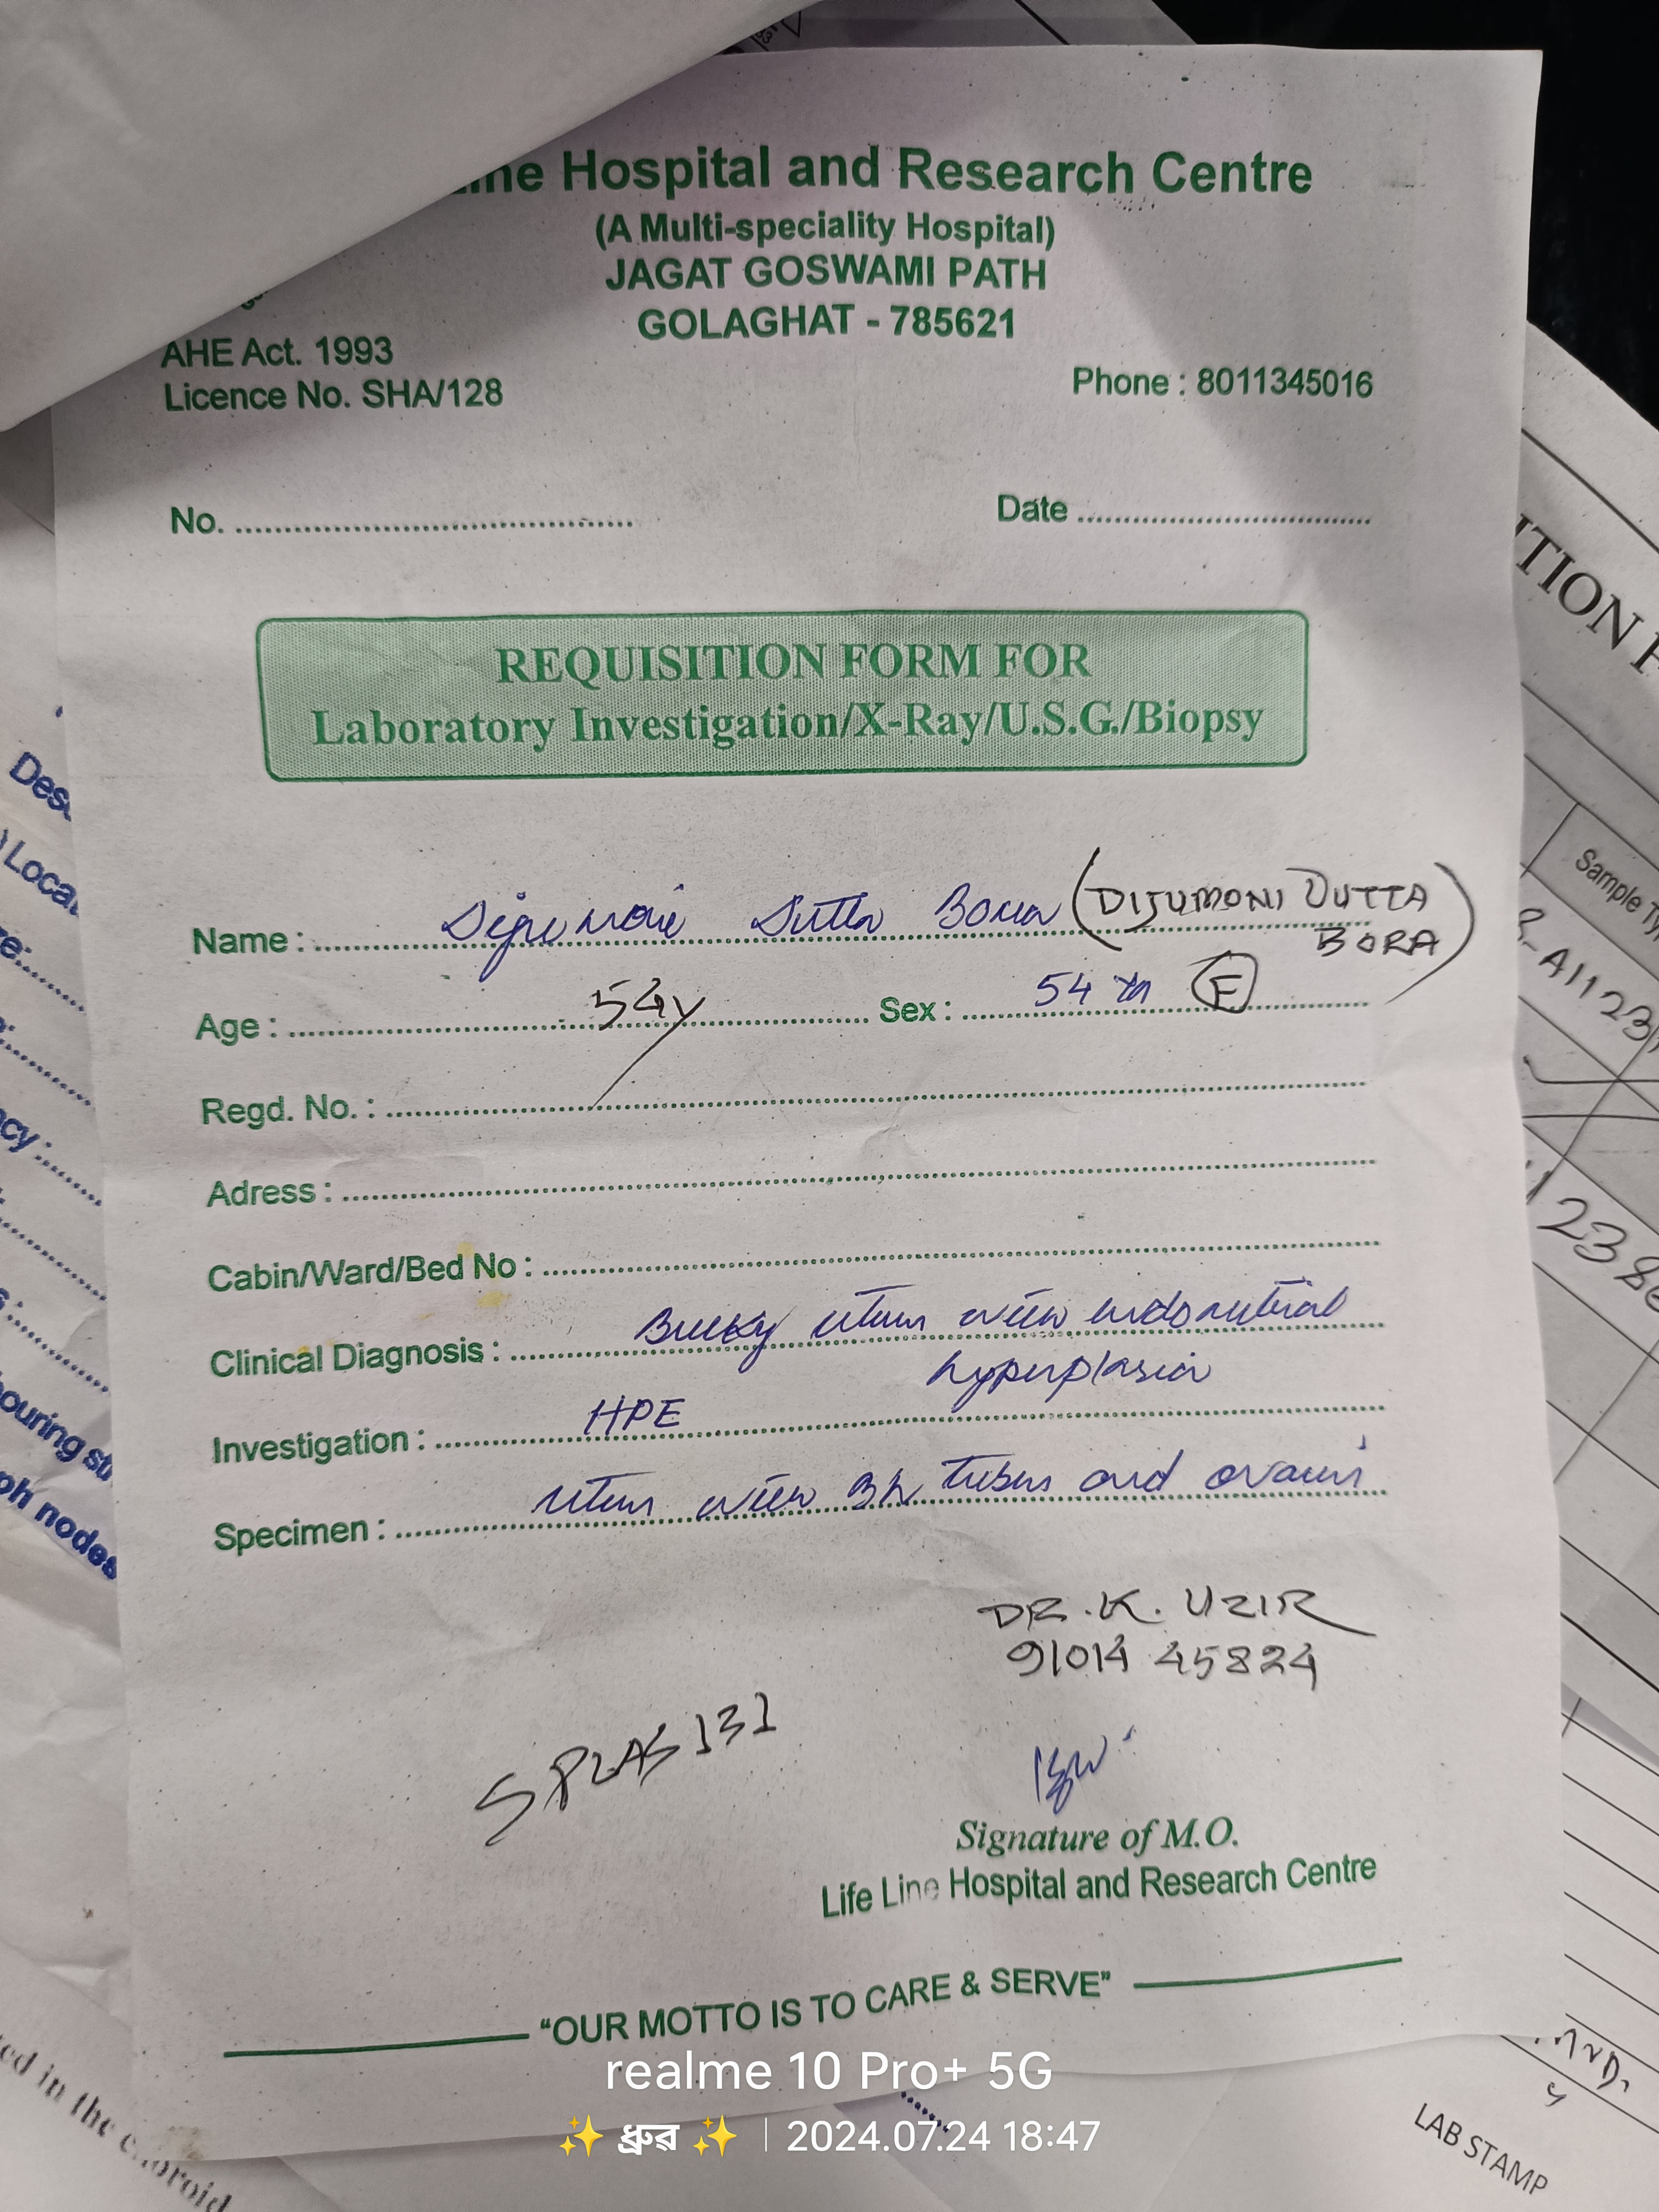 ine Hospital and Research Centre
(A Multi-speciality Hospital)
JAGAT GOSWAMI PATH
GOLAGHAT - 785621
AHE Act. 1993
Licence No. SHA/128
Phone : 8011345016
No.
Date
REQUISITION FORM FOR
Laboratory Investigation/X-Ray/U.S.G./Biopsy
Name : Dutta Bora (DIJUMONI DUTTA BORA)
Age : 54y Sex : 54 F
Regd. No. :
Adress :
Cabin/Ward/Bed No :
Clinical Diagnosis : Bulky uterus with endometrial
hyperplasia
Investigation : HPE
Specimen : uterus with tubes and ovaries
DR. K. UZIR
91014 45824
Signature of M.O.
Life Line Hospital and Research Centre
"OUR MOTTO IS TO CARE & SERVE"
Sample Ty
A1123
238
LAB STAMP
ITION F
Des
Loca
re:
cy :
ouring st
ph nodes
ed in the
realme 10 Pro+ 5G
✨ ধ্ৰুৱ ✨ | 2024.07.24 18:47